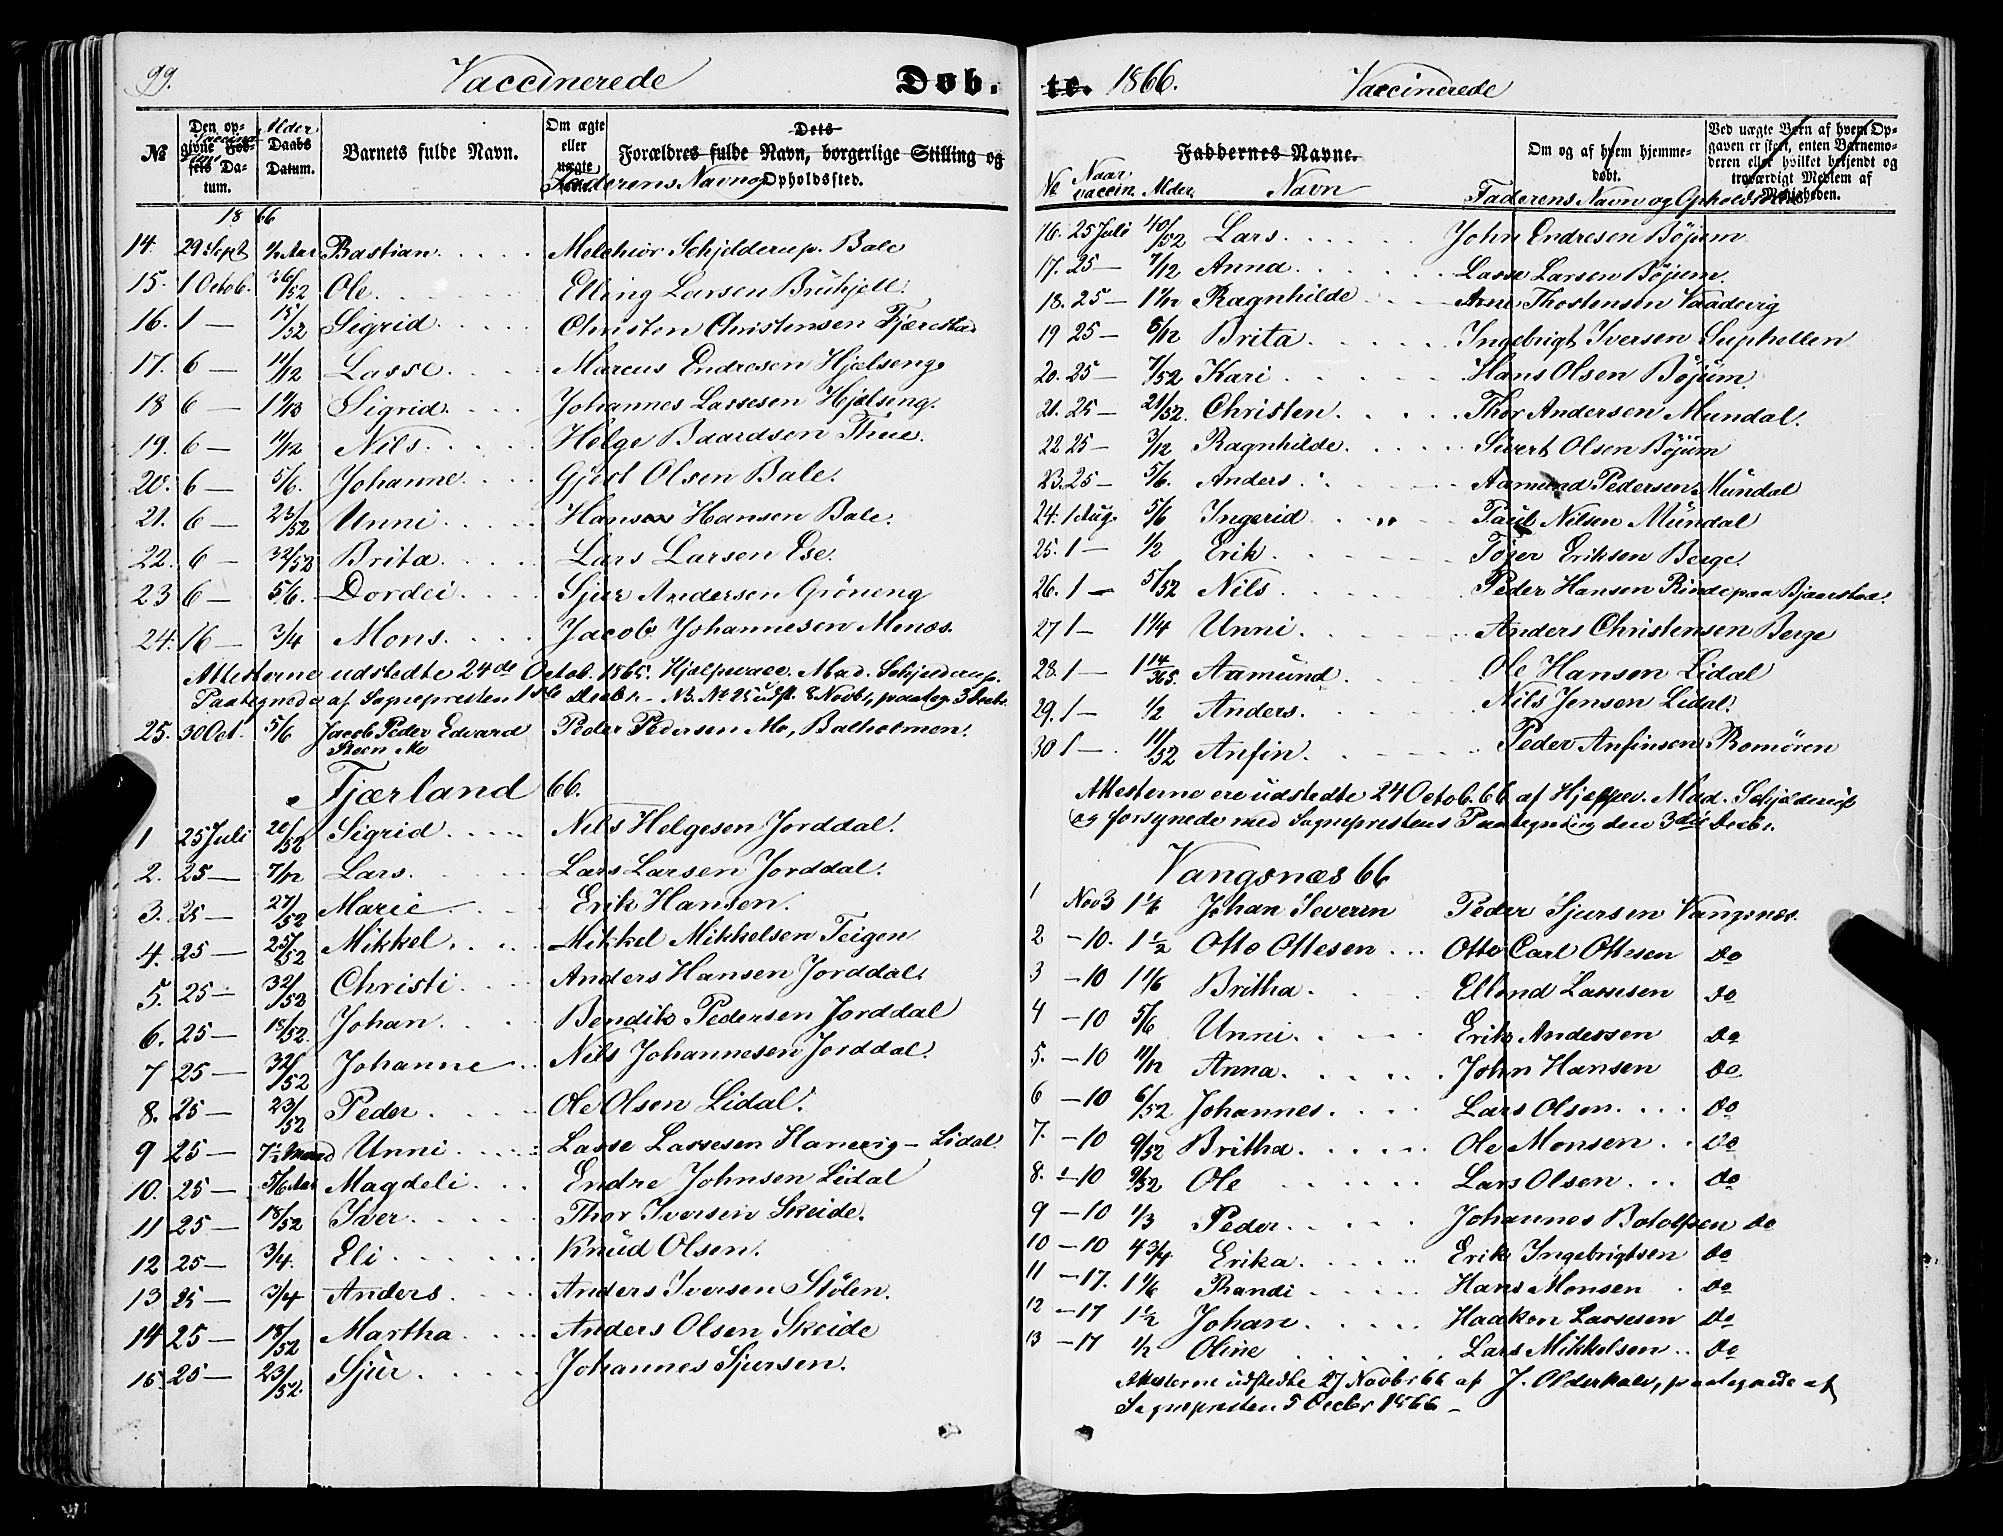 99. Vaccinerede Døb.
№ Den opgivne Fødsels Datum. Vaccina Alder Daabs Datum. Barnets fulde Navn. Om ægte eller uægte Dets Forældres fulde Navn, borgerlige Stilling og Opholdssted. Faderens Navn og
1866
14. 29 Sept ½ Aar Bastian Melchior Schjelderup. Bale
15. 1 Octob. 36/52 Ole Elling Larsen
16. 1 — 15/52 Sigrid Christen Christensen Fjærestad
17. 6 — 11/12 Lasse Marcus Endresen Hjelseng
18 6 — Sigrid Johannes Lassesen Hjelseng.
19. 6 — 11/12 Nils Helge Baardsen Thue.
20. 6 — 5/6. Johanne Gjert Olsen Bale.
21. 6 — 23/52 Unni Hansen Bale.
22. 6 — 32/52 Brita Lars Larsen Ese.
23 6 — 5/6. Dordei Sjur Andersen Gröneng
24. 16 — 3/4 Mons. Jacob Johannesen Menes.
Attesterne udstedte 24de Octob. 1866. Hjælpevacc. Mad. Schjelderup.
Paategnede af Sognepresten 1ste Decbr. - NB. No 25 udst. 8 Novbr, paateg. 3 Decbr.
25. 30 Oct. 5/6 Jacob Peder Edvard Steen Mo Peder Pedersen Mo, Balholmen.
Fjærland 66.
1 25 Juli 20/52 Sigrid Nils Helgesen Jorddal.
2. 25 — 7/12 Lars. Lars Larsen Jorddal.
3. 25 — 27/52 Marie Erik Hansen.
4. 25 — 25/52 Mikkel Mikkel Mikkelsen Teigen
5. 25 — 32/52 Christi Anders Hansen Jorddal.
6. 25 — 18/52. Johan Bendik Pedersen Jorddal
7 25 — 32/52 Johanne Nils Johannesen Jorddal.
8. 25 — 23/52 Peder Ole Olsen Lidal.
9 25 — 7½ Maaned Unni Lasse Lassesen Hamrevig — Lidal
10. 25 — 5/6 Aar Magdeli Endre Johnsen Lidal
11 25 — 18/52 Iver Thor Iversen Skeide.
12 25 — 3/4. Eli Knud Olsen.
13 25 — 3/4 Anders Anders Iversen Stölen.
14 25 — 18/52 Martha Anders Olsen Skeide
15. 25 — 23/52. Sjur Johannes Sjursen.
te. 1866. Vaccinerede
Faddernes Navne. Om og af hvem hjemmedøbt. Ved uægte Børn af hvem Opgaven er skeet, enten Barnemoderen eller hvilket bekjendt og troværdigt Medlem af Menigheden.
№ Naar vaccin. Alder. Navn Faderens Navn og Opholdssted
16. 25 Juli 40/52 Lars John Endresen Böjum
17. 25 — 7/12 Anna Lasse Larsen Böjum.
18. 25 — 1 1/12 Ragnhilde Arne Thostensen Vaadevig
19 25 — 5/12 Brita Ingebrigt Iversen Suphellen
20. 25 — 7/52 Kari Hans Olsen Böjum.
21. 25 — 21/52. Christen Thor Andersen Mundal.
22 25 — 3/12 Ragnhilde Sivert Olsen Böjum
23. 25 — 5/6. Anders Aamund Pedersen Mundal
24. 1 Aug. 5/6 Ingerid Paul Nilsen Mundal
25. 1 — 1/2 Erik Töger Eriksen Berge.
26. 1 — 5/52 Nils Peder Hansen Rinde paa Bjaastad.
27 1 — 1¼ Unni Anders Christensen Berge
28. 1 — 1 14/365. Aamund Ole Hansen Lidal
29. 1 — 1/2 Anders Nils Jensen Lidal.
30 1 — 11/52 Anfin Peder Anfinsen Romören
Attesterne ere udstedte 24 Octob. 66 af Hjelpev. Mad. Schjelderup
og forsynede med Sogneprestens Paategning den 3die Decbr.
Vangsnæs 66
1 Nov 3 Johan Severin Peder Sjursen Vangsnæs.
2 — 10. 1½ Otto Ottesen Otto Carl Ottesen do
3 — 10 1 1/6 Britha Ellend Lassesen do
4 — 10 5/6 Unni Erik Andersen do
5. — 10 11/12 Anna John Hansen do
6 — 10 6/52 Johannes Lars Olsen do
7. — 10 9/52 Britha Ole Monsen do
8. — 10 9/52 Ole Lars Olsen do
9 — 10 1/3 Peder Johannes Botolfsen do
10 — 10 4¾ Erika Erik Ingebrigtsen do
11 — 17. 1 1/6 Randi Hans Monsen do
12 — 17 1½ Johan Haakon Lassesen do
13 — 17 1/2 Oline Lars Mikkelsen do
Attesterne udstedte 27 Novbr 66 af J. paategnede af
Sognepresten 5 Decbr 1866 —